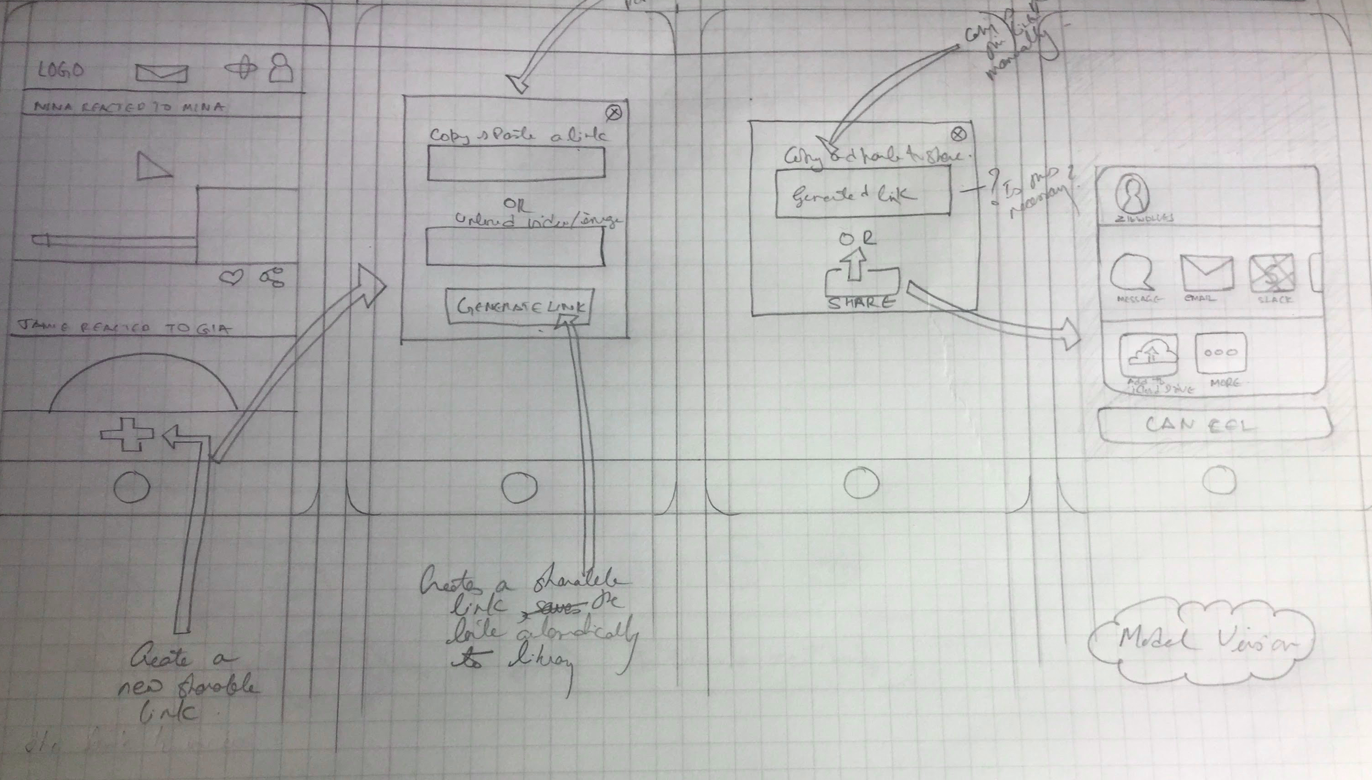 LOGO
NINA REACTED TO MINA
JAMIE REACTED TO GIA
Create a
new sharable
link
Copy & Paste a link
OR
Upload video/image
GENERATE LINK
Creates a sharable
link, saves the
automatically
to library
Copy
link
manually
Copy and paste to share.
Generated link
? Is this
necessary?
OR
SHARE
MESSAGE
EMAIL
SLACK
Add to
iCloud Drive
MORE
CANCEL
Model Version